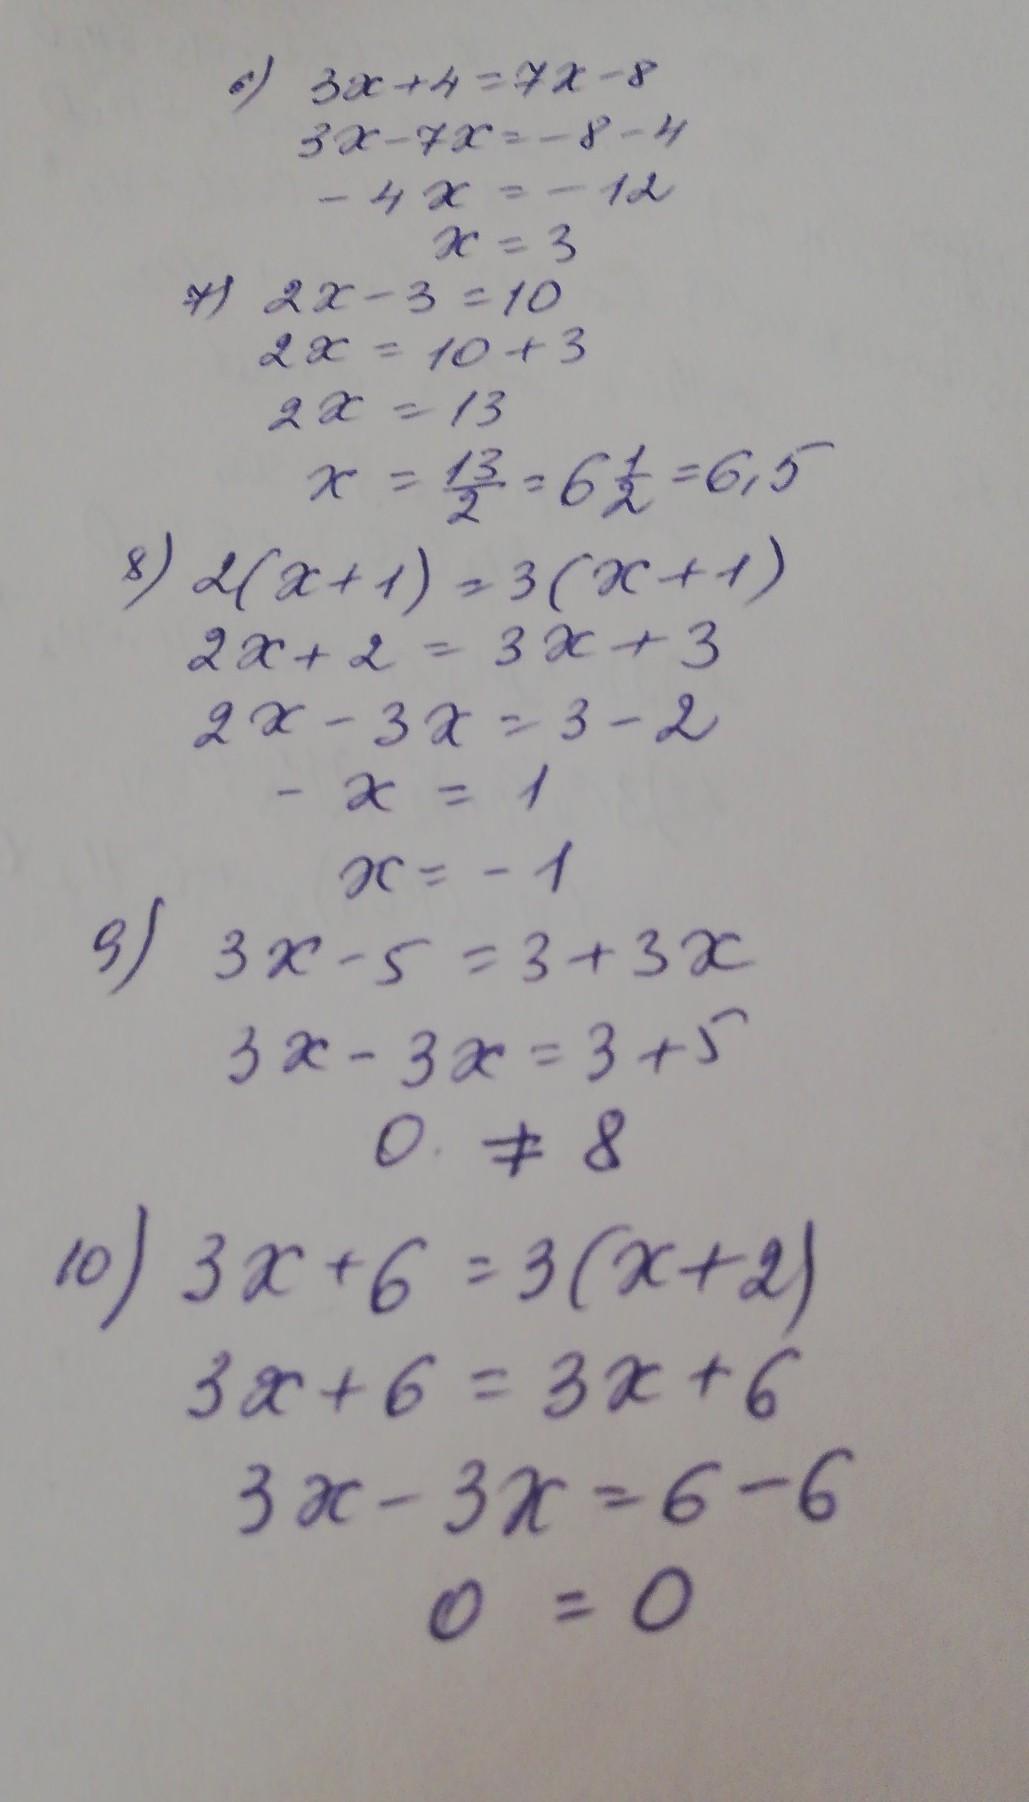 6) 3x+4=7x-8
3x-7x=-8-4
-4x=-12
x=3
7) 2x-3=10
2x=10+3
2x=13
x=13/2=6 1/2=6,5
8) 2(x+1)=3(x+1)
2x+2=3x+3
2x-3x=3-2
-x=1
x=-1
9) 3x-5=3+3x
3x-3x=3+5
0≠8
10) 3x+6=3(x+2)
3x+6=3x+6
3x-3x=6-6
0=0